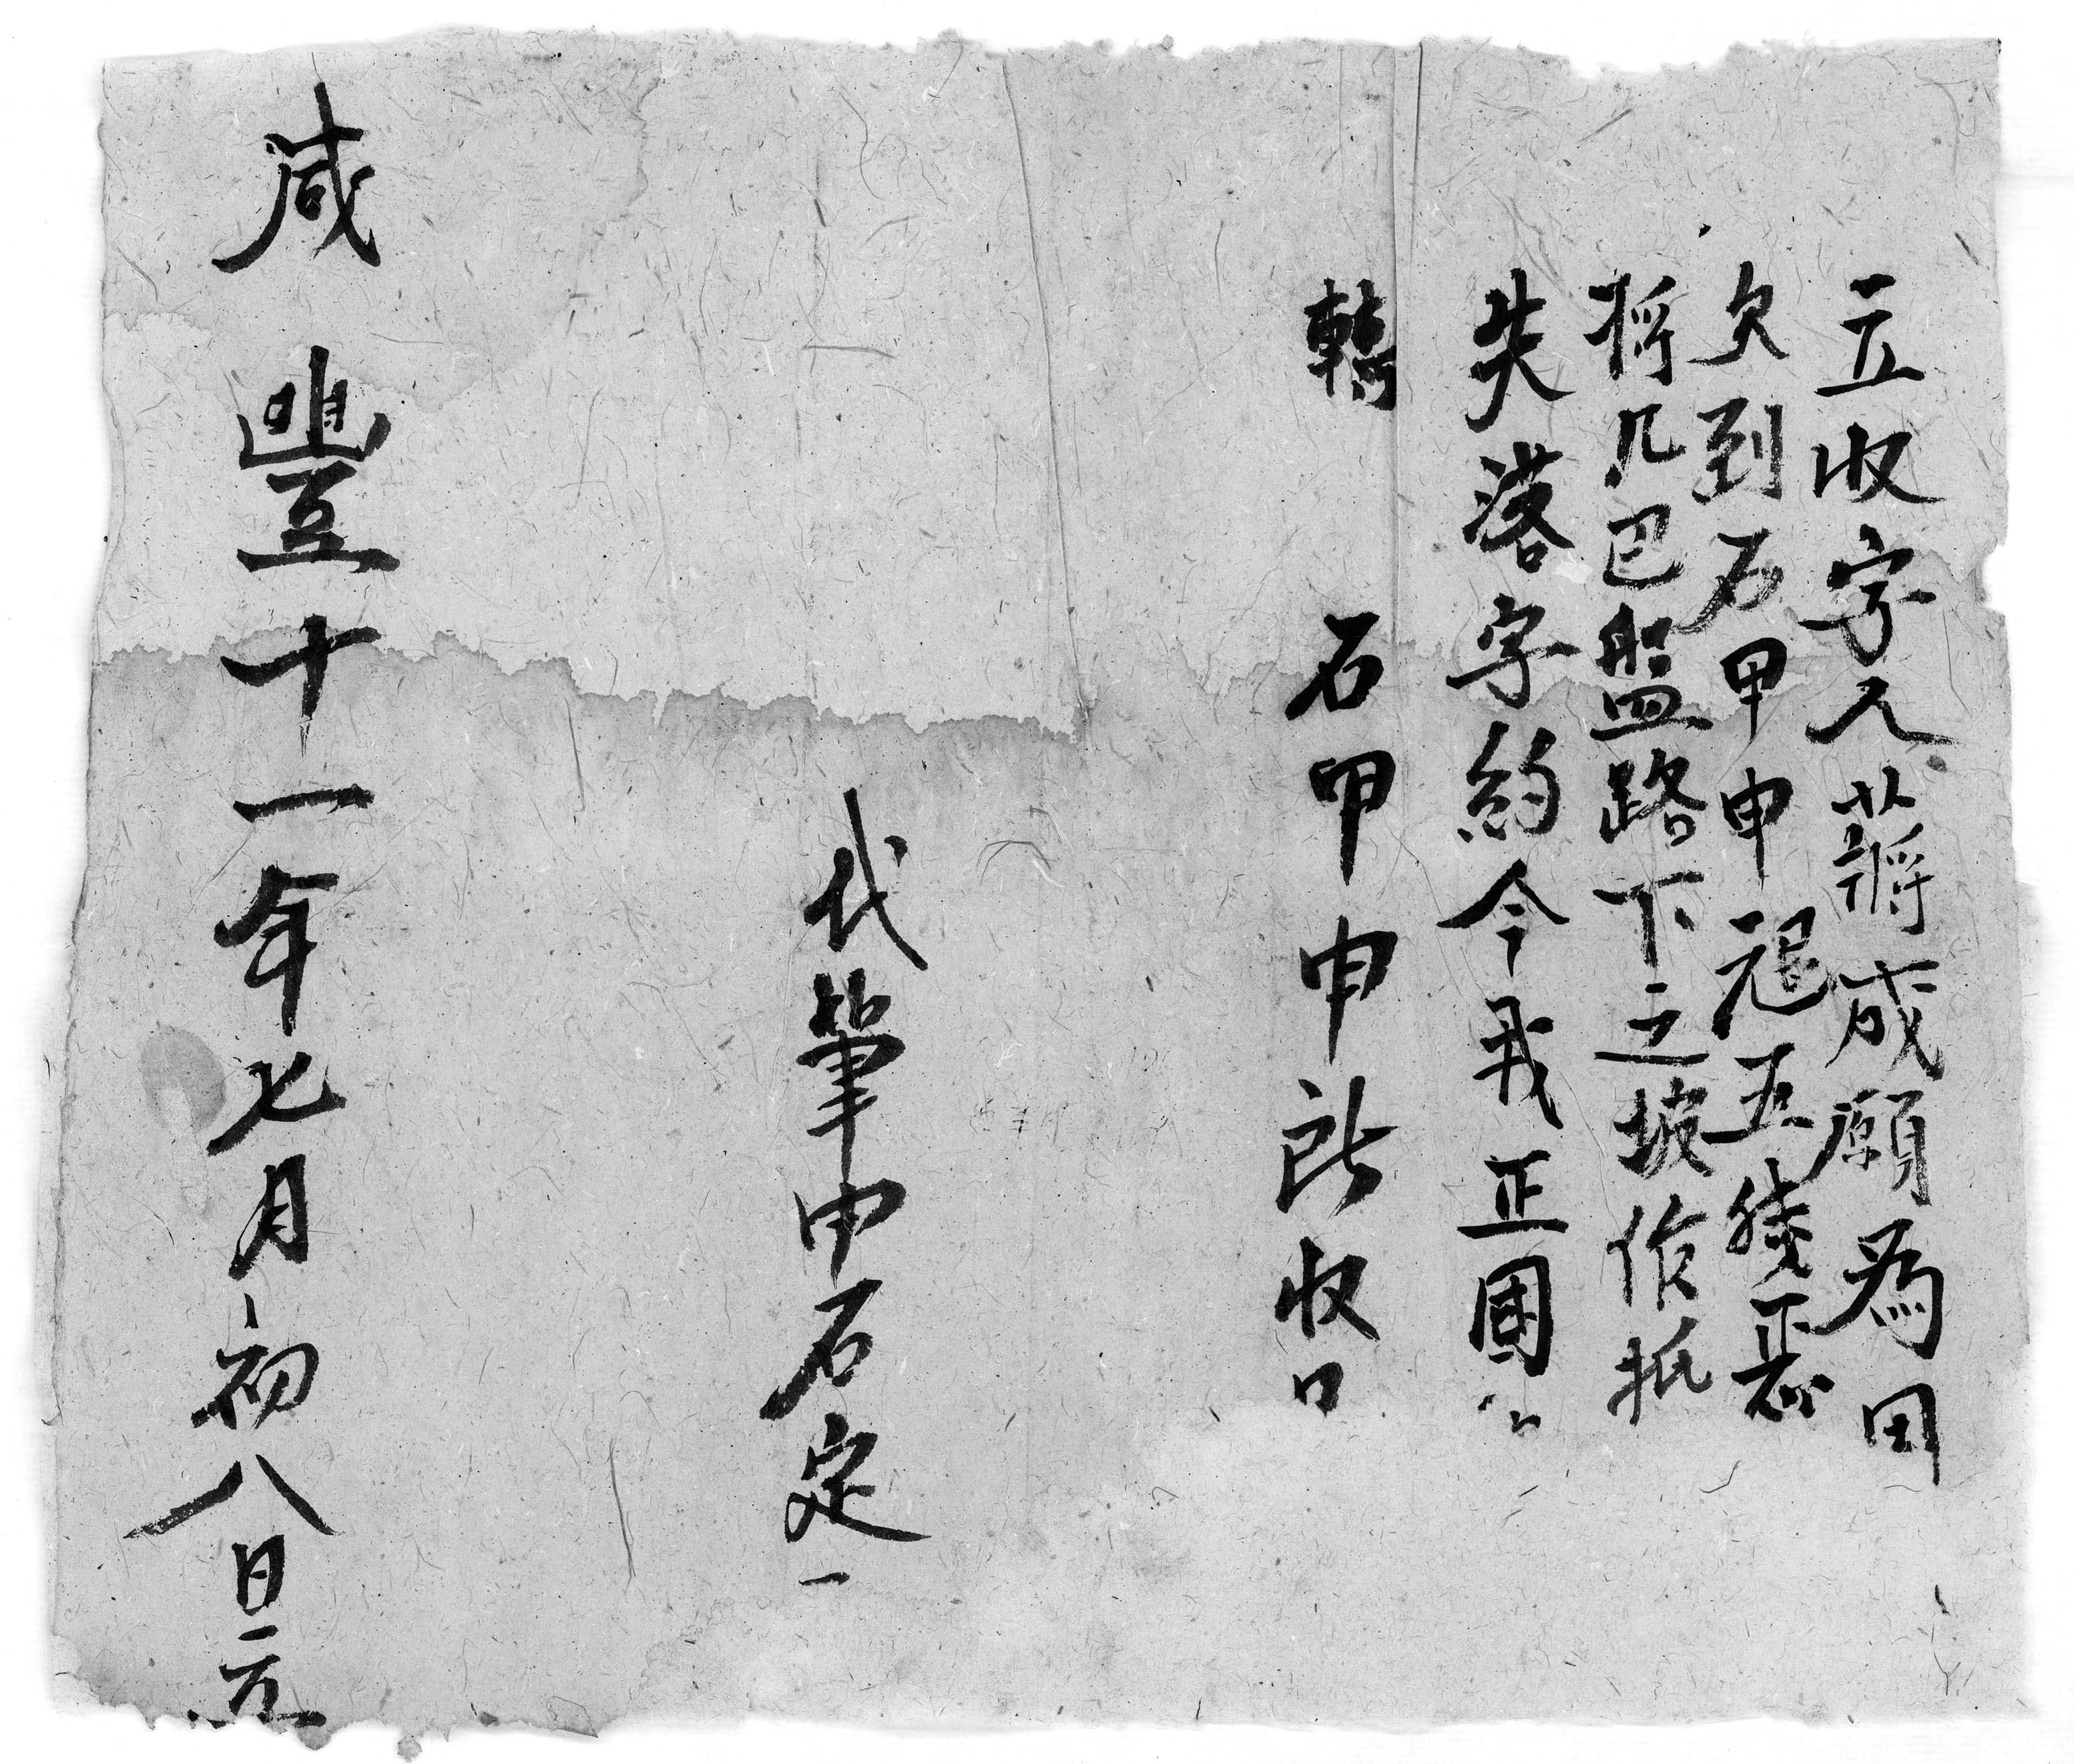 立收字人蔣成願為田
欠到石甲申福五錢悪
將几巴盤路下之坡作抵
失落字約今我正國
轉 石甲申所收口
代筆甲石定一
咸豐十一年七月初八日立